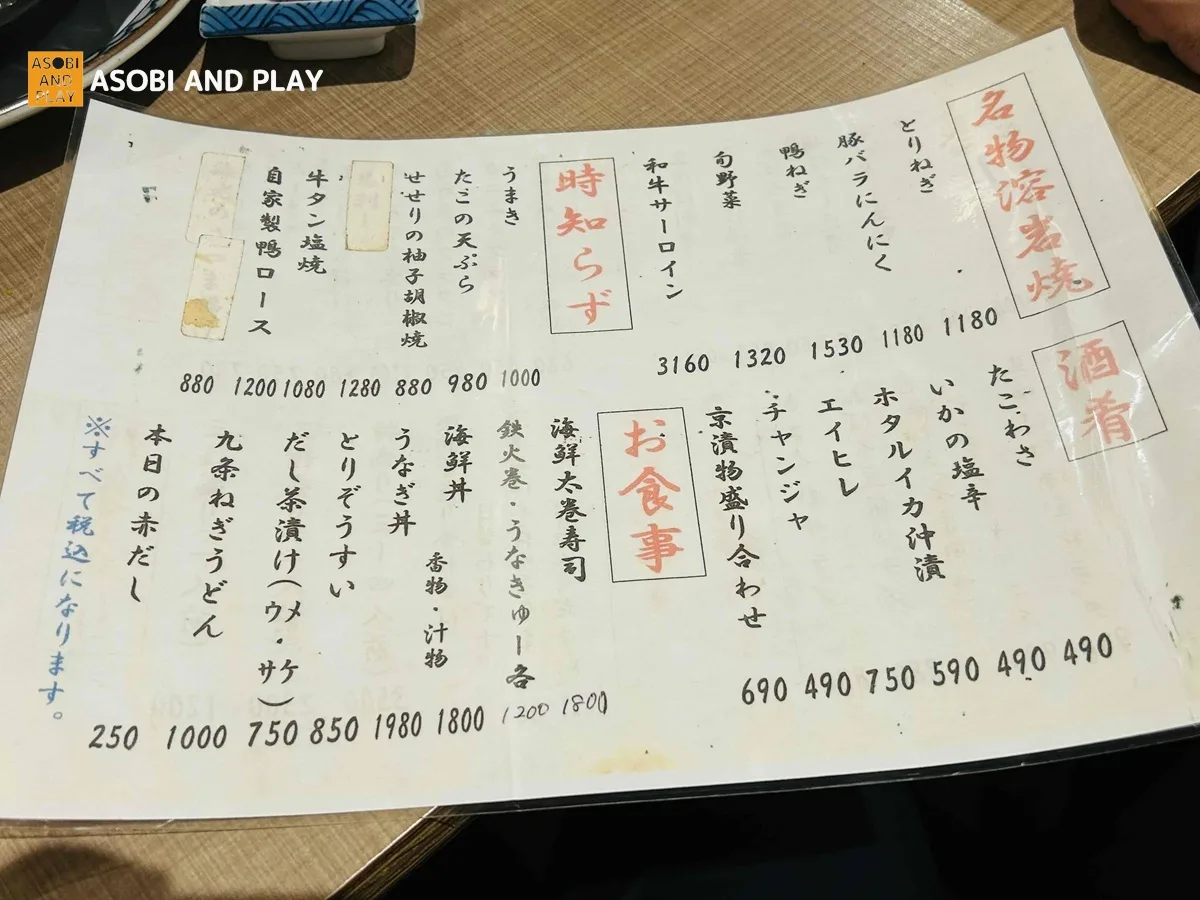 ASOBI AND PLAY
ASOBI AND PLAY
名物溶岩焼
とりねぎ
豚バラにんにく
鴨ねぎ
旬野菜
和牛サーロイン
1180
1180
1530
1320
3160
時知らず
うまき
たこの天ぷら
せせりの柚子胡椒焼
牛タン塩焼
自家製鴨ロース
1000
980
880
1280
1080
1200
880
酒肴
たこわさ
いかの塩辛
ホタルイカ沖漬
エイヒレ
チャンジャ
京漬物盛り合わせ
490
490
590
750
490
690
お食事
海鮮太巻寿司
鉄火巻・うなきゅー各
海鮮丼
うなぎ丼
香物・汁物
とりぞうすい
だし茶漬け(ウメ・サケ)
九条ねぎうどん
本日の赤だし
1800
1200
1800
1980
850
750
1000
250
※すべて税込になります。